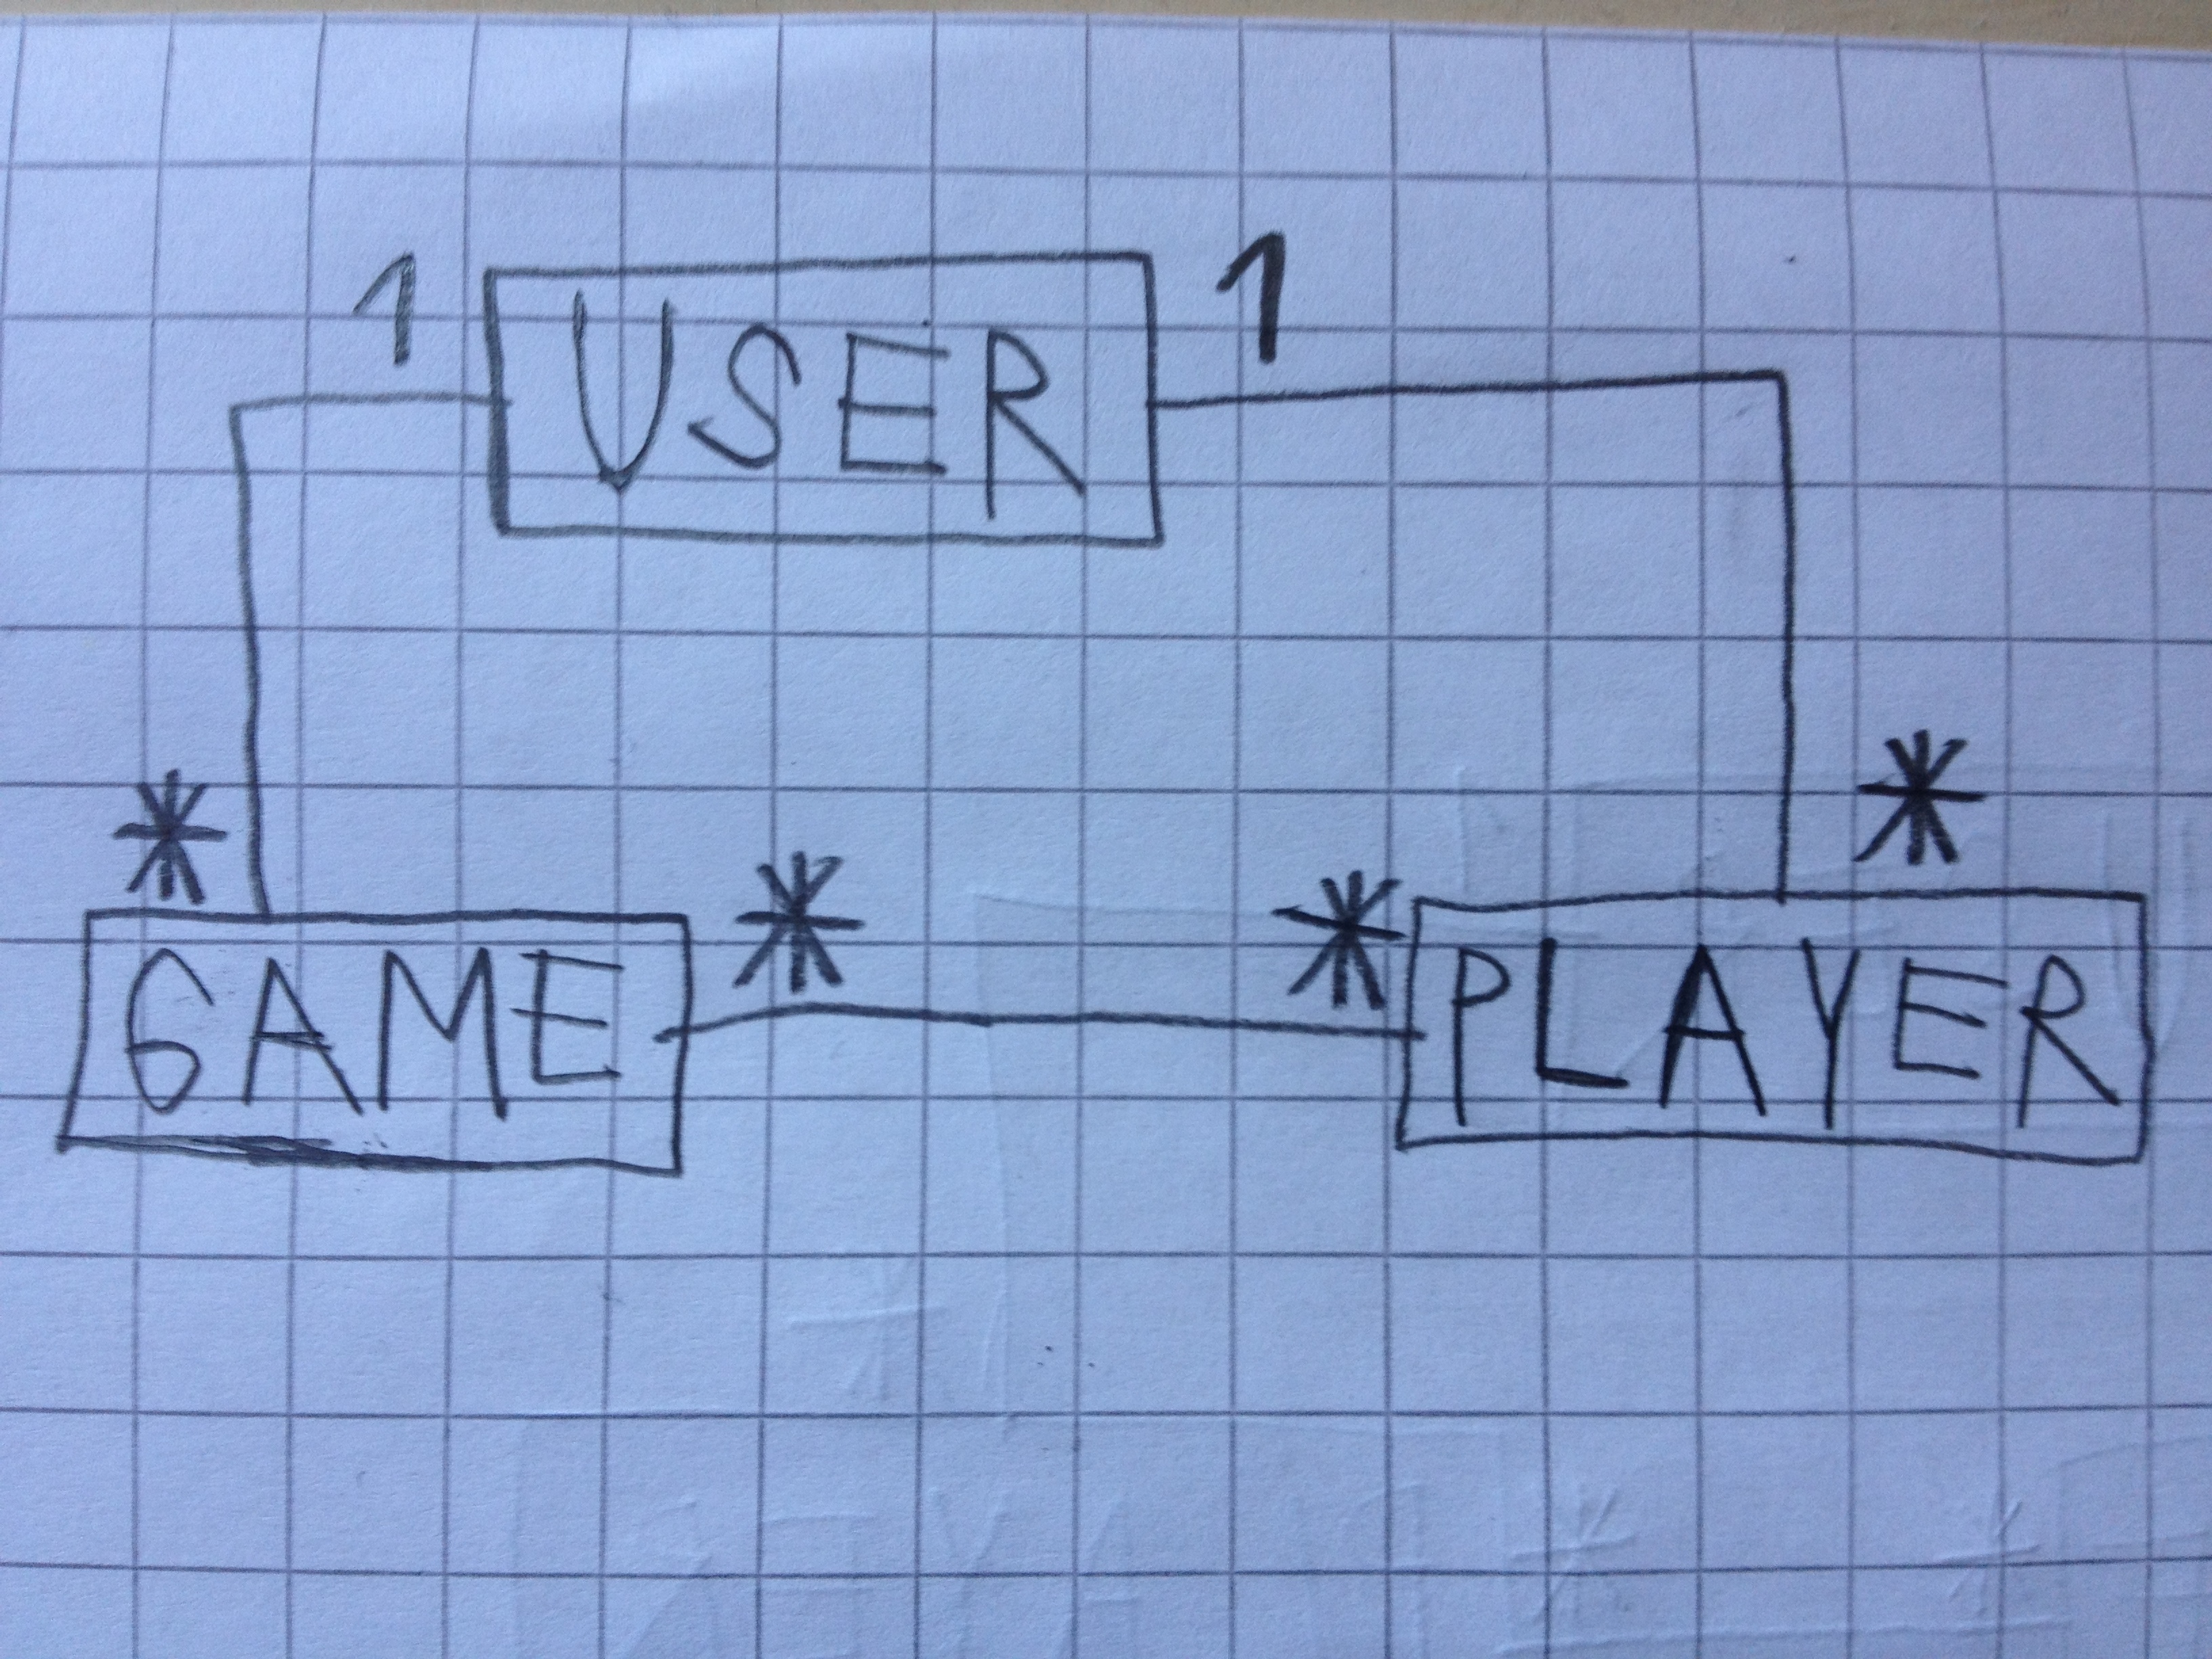 1 USER 1
* *
* *
GAME PLAYER